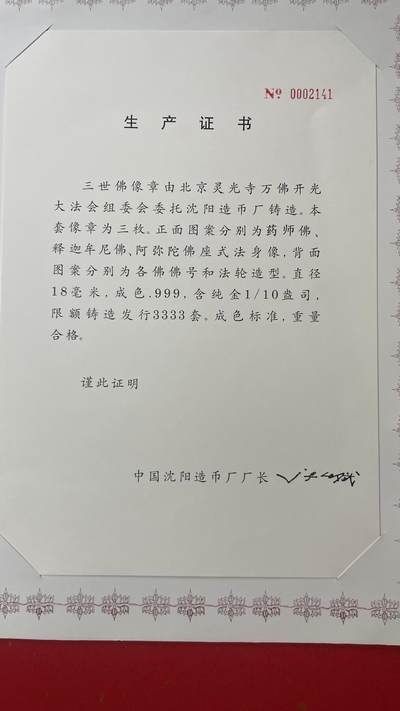 № 0002141
生产证书
三世佛像章由北京灵光寺万佛开光
大法会组委会委托沈阳造币厂铸造。本
套像章为三枚。正面图案分别为药师佛、
释迦牟尼佛、阿弥陀佛座式法身像，背面
图案分别为各佛佛号和法轮造型。直径
18毫米，成色.999，含纯金1/10盎司，
限额铸造发行3333套。成色标准，重量
合格。
谨此证明
中国沈阳造币厂厂长